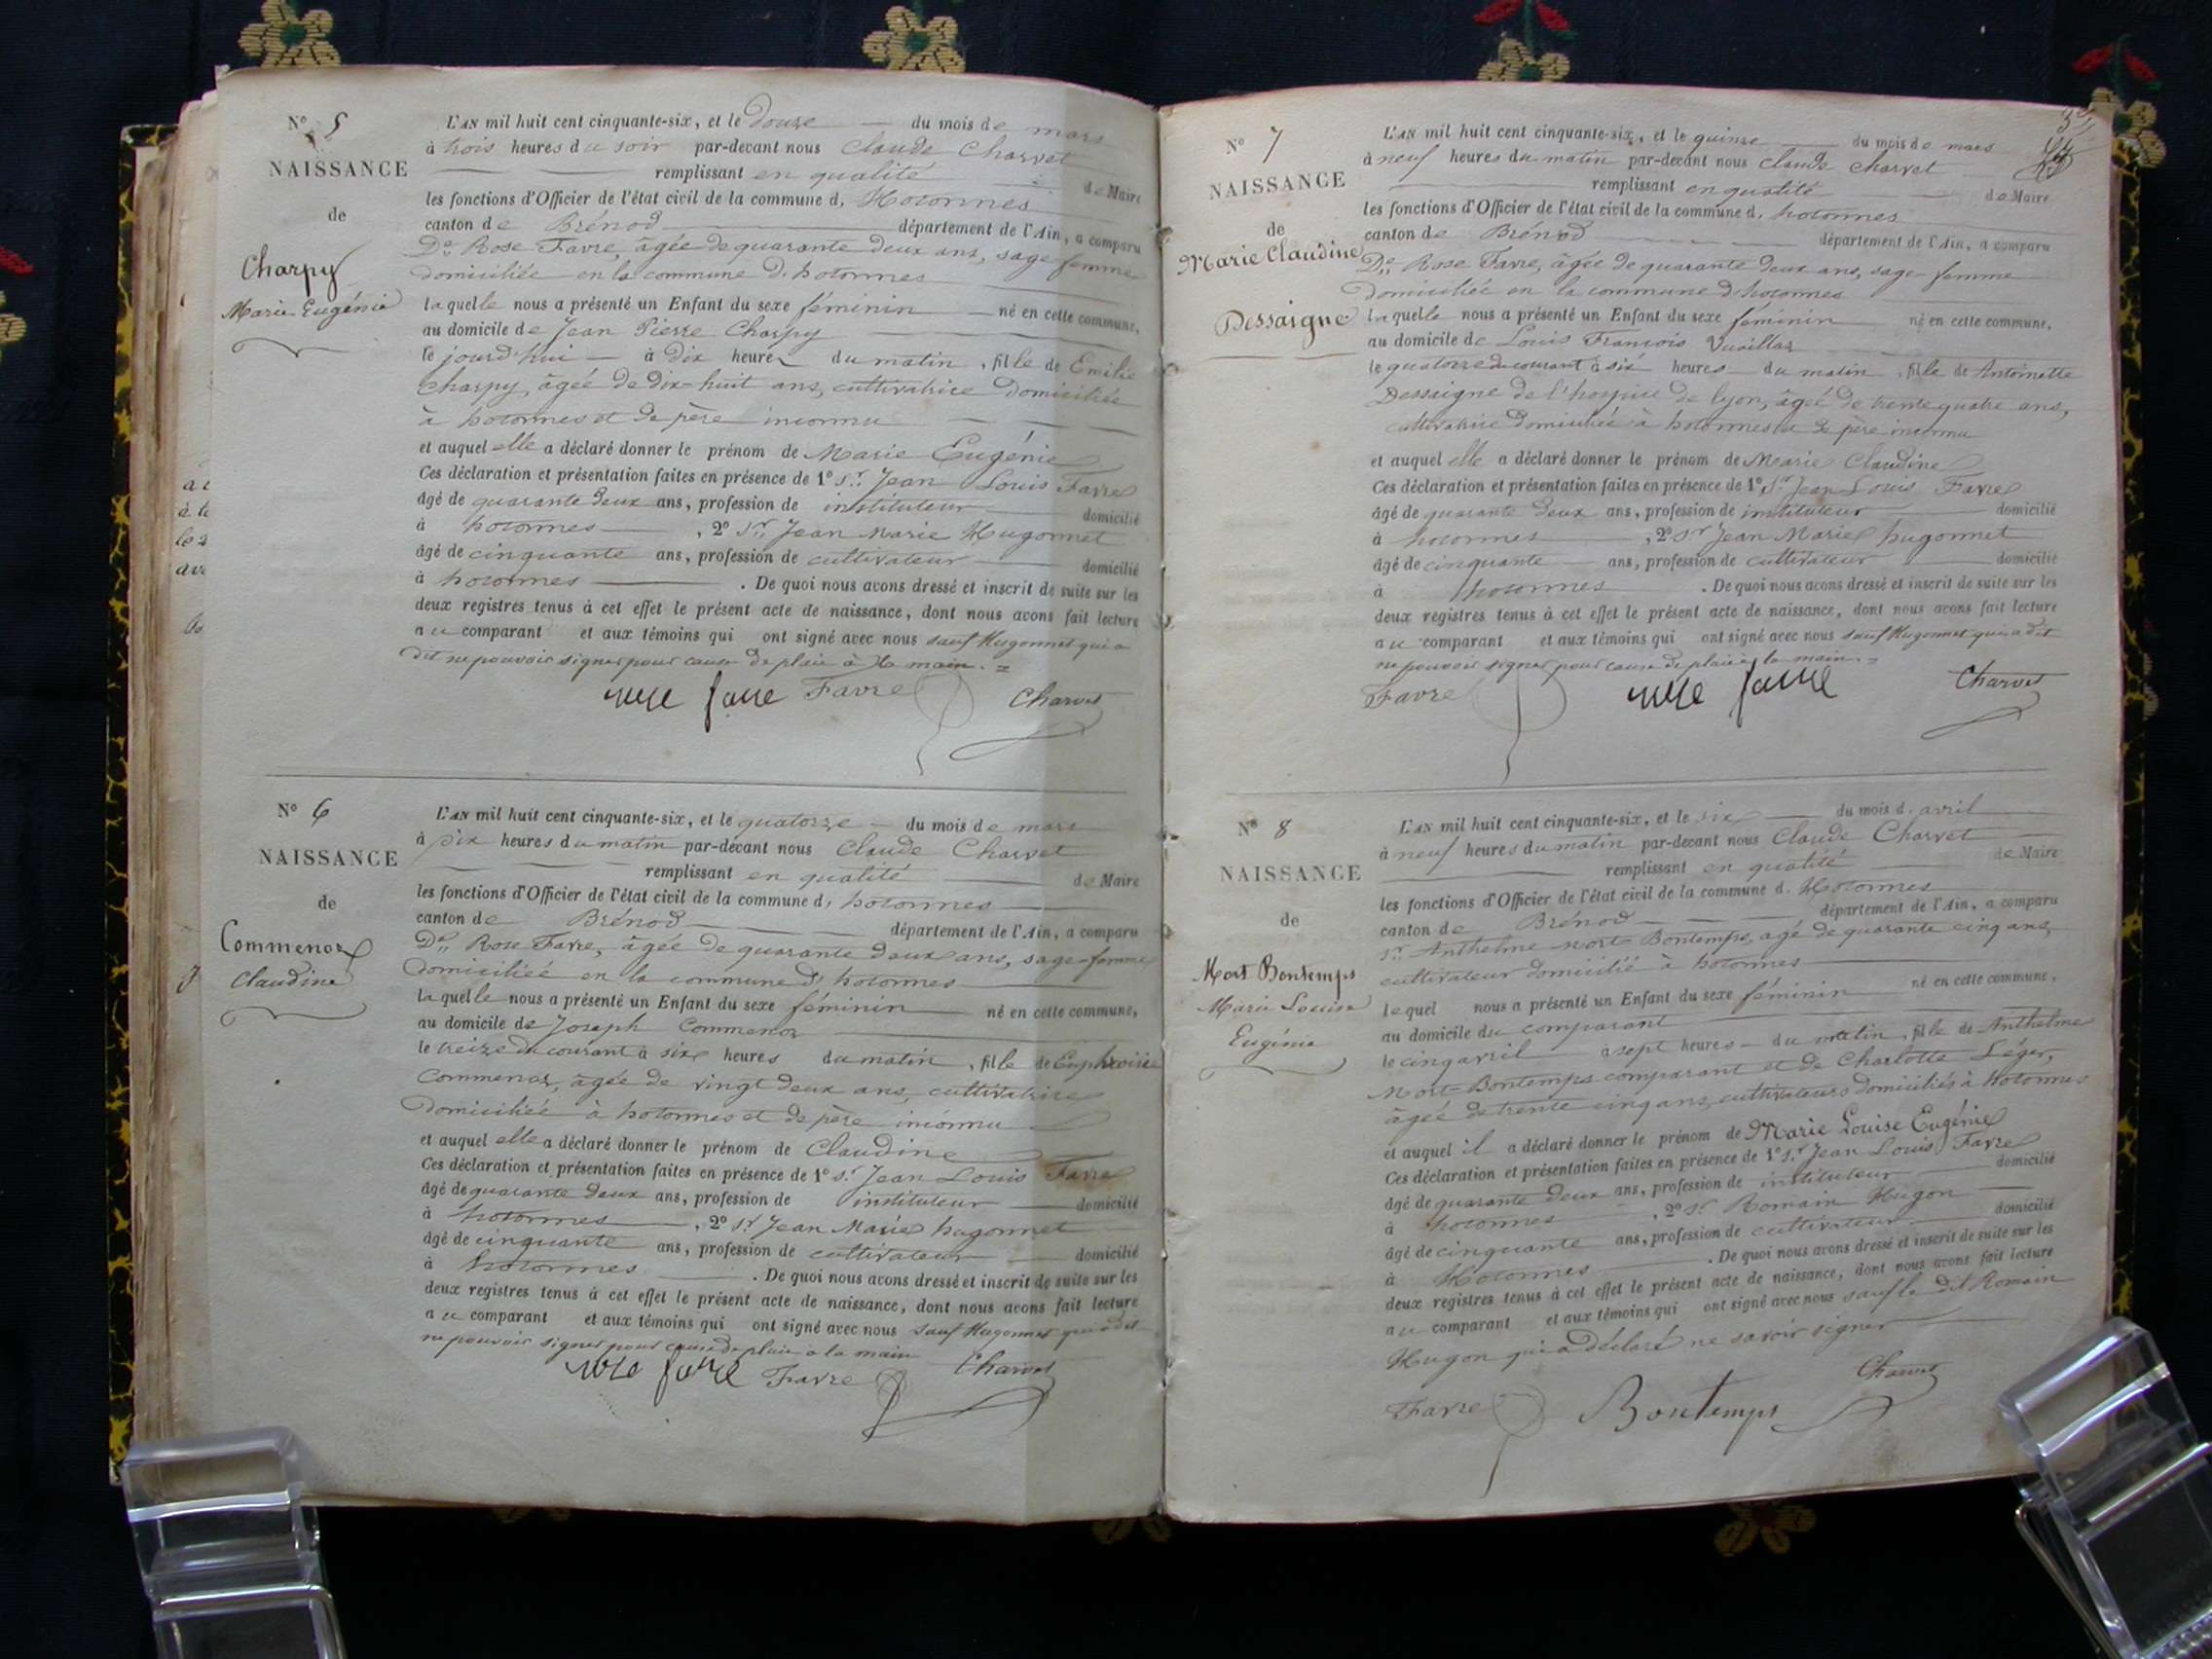 N° 5
NAISSANCE
de
Charpy
Marie Eugénie
L'AN mil huit cent cinquante-six, et le douze du mois de mars
à trois heures du soir par-devant nous Claude Charvet
remplissant en qualité de Maire
les fonctions d'Officier de l'état civil de la commune d, Hotonnes
canton de Brénod département de l'Ain, a comparu
De Rose Favre, âgée de quarante deux ans, sage-femme
domiciliée en la commune d'hotonnes
laquelle nous a présenté un Enfant du sexe féminin né en cette commune,
au domicile de Jean Pierre Charpy
le jourd'hui à dix heures du matin, fille de Emilie
Charpy, âgée de dix-huit ans, cultivatrice domiciliée
à hotonnes et de père inconnu
et auquel elle a déclaré donner le prénom de Marie Eugénie
Ces déclaration et présentation faites en présence de 1° Sr. Jean Louis Favre
âgé de quarante deux ans, profession de instituteur domicilié
à hotonnes, 2° Sr. Jean Marie Hugonnet
âgé de cinquante ans, profession de cultivateur domicilié
à hotonnes. De quoi nous avons dressé et inscrit de suite sur les
deux registres tenus à cet effet le présent acte de naissance, dont nous avons fait lecture
au comparant et aux témoins qui ont signé avec nous sauf Hugonnet qui a
dit ne pouvoir signer pour cause de plaie à la main. =
rose favre Favre Charvet
N° 6
NAISSANCE
de
Commenoz
Claudine
L'AN mil huit cent cinquante-six, et le quatorze du mois de mars
à dix heures du matin par-devant nous Claude Charvet
remplissant en qualité de Maire
les fonctions d'Officier de l'état civil de la commune d, hotonnes
canton de Brénod département de l'Ain, a comparu
De Rose Favre, âgée de quarante deux ans, sage-femme
domiciliée en la commune d'hotonnes
laquelle nous a présenté un Enfant du sexe féminin né en cette commune,
au domicile de Joseph Commenoz
le treize du courant à six heures du matin, fille de Euphroisie
Commenoz, âgée de vingt deux ans, cultivatrice
domiciliée à hotonnes et de père inconnu
et auquel elle a déclaré donner le prénom de Claudine
Ces déclaration et présentation faites en présence de 1° Sr. Jean Louis Favre
âgé de quarante deux ans, profession de instituteur domicilié
à hotonnes, 2° Sr. Jean Marie hugonnet
âgé de cinquante ans, profession de cultivateur domicilié
à hotonnes. De quoi nous avons dressé et inscrit de suite sur les
deux registres tenus à cet effet le présent acte de naissance, dont nous avons fait lecture
au comparant et aux témoins qui ont signé avec nous sauf Hugonnet qui a dit
ne pouvoir signer pour cause de plaie à la main
rose favre Favre Charvet
N° 7
NAISSANCE
de
Marie Claudine
Dessaigne
L'AN mil huit cent cinquante-six, et le quinze du mois de mars
à neuf heures du matin par-devant nous Claude Charvet
remplissant en qualité de Maire
les fonctions d'Officier de l'état civil de la commune d, hotonnes
canton de Brénod département de l'Ain, a comparu
De Rose Favre, âgée de quarante deux ans, sage-femme
domiciliée en la commune d'hotonnes
laquelle nous a présenté un Enfant du sexe féminin né en cette commune,
au domicile de Louis François Vuaillaz
le quatorze du courant à six heures du matin, fille de Antoinette
Dessaigne de l'hospice de lyon, âgée de trente quatre ans,
cultivatrice domiciliée à hotonnes et de père inconnu
et auquel elle a déclaré donner le prénom de Marie Claudine
Ces déclaration et présentation faites en présence de 1° Sr Jean Louis Favre
âgé de quarante deux ans, profession de instituteur domicilié
à hotonnes, 2° Sr Jean Marie hugonnet
âgé de cinquante ans, profession de cultivateur domicilié
à hotonnes. De quoi nous avons dressé et inscrit de suite sur les
deux registres tenus à cet effet le présent acte de naissance, dont nous avons fait lecture
au comparant et aux témoins qui ont signé avec nous sauf Hugonnet qui a dit
ne pouvoir signer pour cause de plaie à la main. =
Favre rose favre Charvet
N° 8
NAISSANCE
de
Mort Bontemps
Marie Louise
Eugénie
L'AN mil huit cent cinquante-six, et le six du mois d. avril
à neuf heures du matin par-devant nous Claude Charvet
remplissant en qualité de Maire
les fonctions d'Officier de l'état civil de la commune d. Hotonnes
canton de Brénod département de l'Ain, a comparu
Sr. Anthelme Mort-Bontemps, âgé de quarante cinq ans,
cultivateur domicilié à hotonnes
lequel nous a présenté un Enfant du sexe féminin né en cette commune,
au domicile du comparant
le cinq avril à sept heures du matin, fille de Anthelme
Mort-Bontemps comparant et de Charlotte Léger,
âgée de trente cinq ans, cultivateurs domiciliés à Hotonnes
et auquel il a déclaré donner le prénom de Marie Louise Eugénie
Ces déclaration et présentation faites en présence de 1° Sr. Jean Louis Favre
âgé de quarante deux ans, profession de instituteur domicilié
à hotonnes, 2° Sr. Romain Hugon
âgé de cinquante ans, profession de cultivateur domicilié
à Hotonnes. De quoi nous avons dressé et inscrit de suite sur les
deux registres tenus à cet effet le présent acte de naissance, dont nous avons fait lecture
au comparant et aux témoins qui ont signé avec nous sauf le dit Romain
Hugon qui a déclaré ne savoir signer
Favre Bontemps Charvet